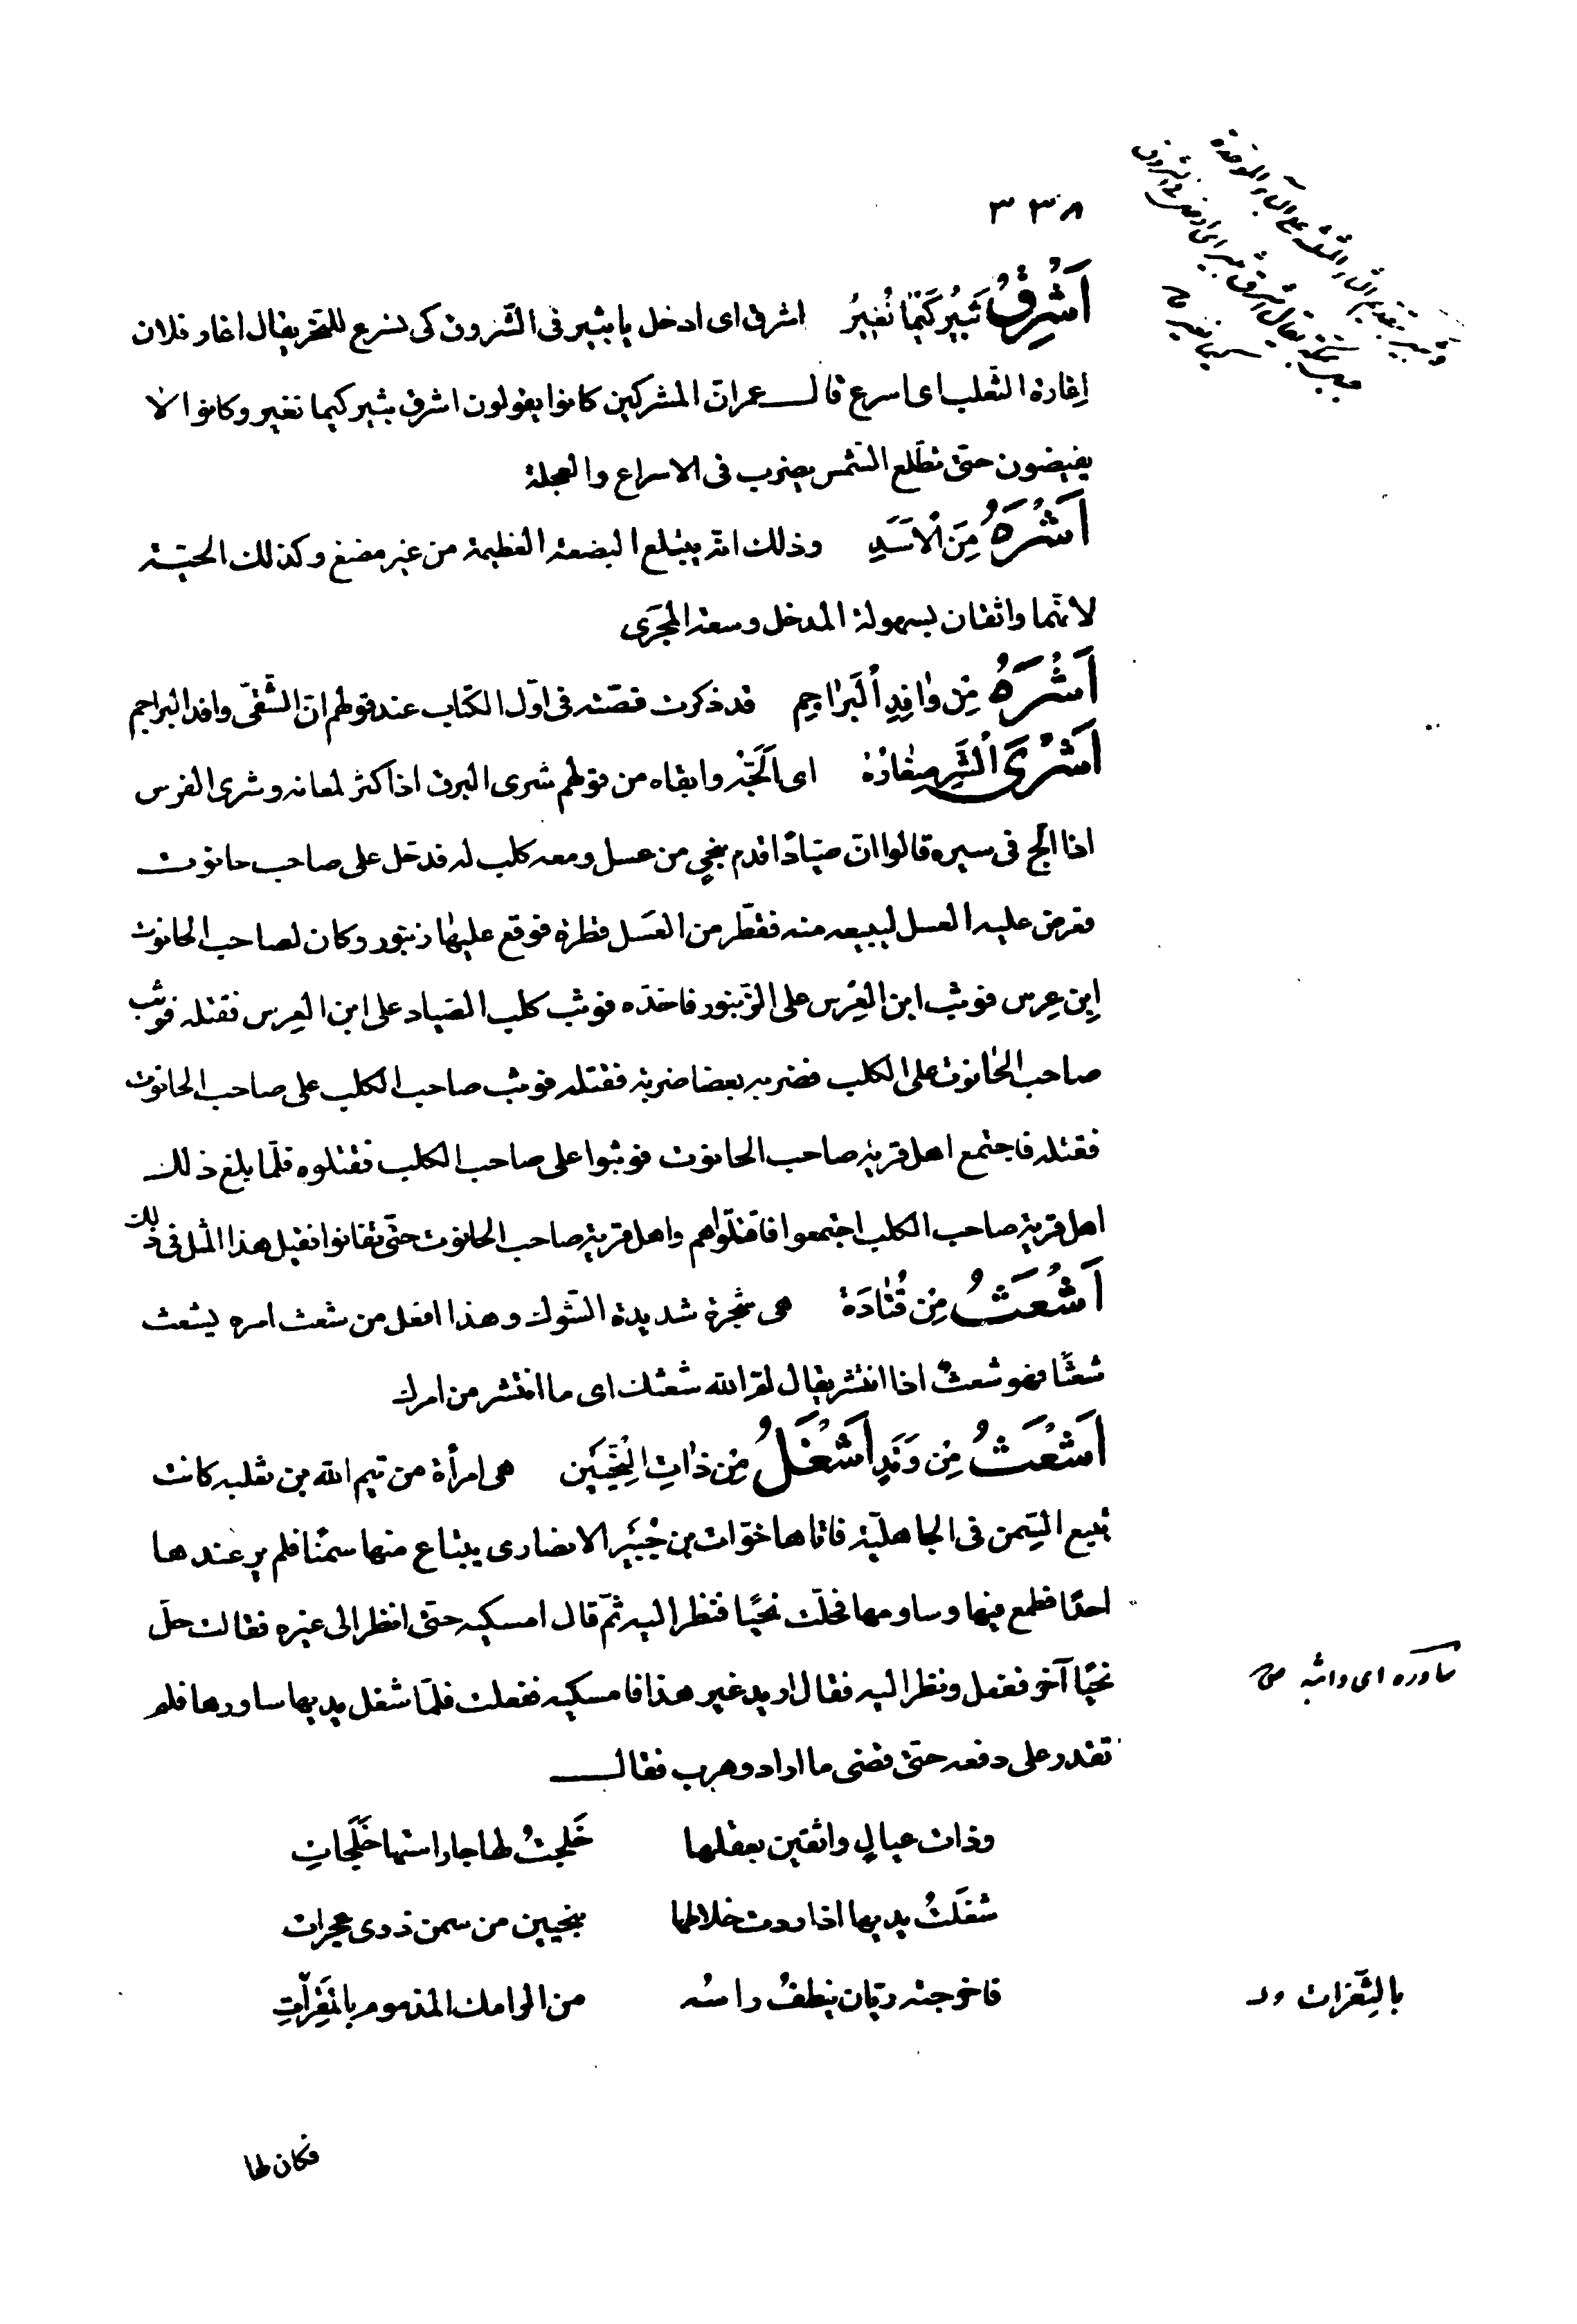 ٣٣٨
اَشْرِقْ ثَبِيرُ كَيْمَا نُغِيرُ اشرق اى ادخل يا ثبير فى الشّروق كى نسرع للنّحر يقال اغار فلان
اِغارة الثّعلب اى اسرع قال عمر انّ المشركين كانوا يقولون اشرق ثبير كيما نغير وكانوا لا
يفيضون حتّى تطلع الشّمس يضرب فى الاسراع والعجلة
اَشْرَهُ مِنَ الْاَسَدِ وذلك انّه يبتلع البضعة العظيمة من غير مضغ وكذلك الحيّة
لانّهما واثقان بسهولة المدخل وسعة المجرَى
اَشْرَهُ مِنْ وَافِدِ الْبَرَاجِمِ قد ذكرت قصّته فى اوّل الكتاب عند قولهم انّ الشّقىّ وافد البراجم
اَشْرَى الشَّرِّ صِغَارُهُ اى اَلَجّه وابقاه من قولهم شرى البرق اذا كثر لمعانه وشرى الفرس
اذا الجّ فى سيره قالوا انّ صيّادًا قدم بنحىٍ من عسل ومعه كلب له فدخل على صاحب حانوت
فعرض عليه العسل ليبيعه منه فقطّر من العسَل قطرة فوقع عليها زنبور وكان لصاحب الحانوت
اِبن عِرس فوثب ابن العِرْس على الزّنبور فاخذه فوثب كلب الصّياد على ابن العِرس فقتله فوثب
صاحب الحانوت على الكلب فضربه بعصا ضربة فقتله فوثب صاحب الكلب على صاحب الحانوت
فقتله فاجتمع اهل قرية صاحب الحانوت فوثبوا على صاحب الكلب فقتلوه فلمّا بلغ ذلك
اهل قرية صاحب الكلب اجتمعوا فاقتتلوا هم واهل قرية صاحب الحانوت حتّى تفانوا فقيل هذا المثل فى ذلك
اَشْعَثُ مِنْ قَتَادَةَ هى شجرة شديدة الشّوك وهذا افعل من شعث امره يشعث
شعثًا فهو شعثٌ اذا انتشر يقال لمّ الله شعثك اى ما انتشر من امرك
اَشْعَثُ مِنْ وَتَدٍ اَشْغَلُ مِنْ ذَاتِ النِّحْيَيْنِ هى امرأة من تيم الله بن ثعلبه كانت
تبيع السّمن فى الجاهليّة فاتاها خوّات بن جُبَيْر الانصارى يبتاع منها سمنًا فلم ير عندها
احدًا فطمع فيها وساومها فحلّت نحيًا فنظر اليه ثمّ قال امسكيه حتّى انظر الى غيره فقالت حلّ
نحيًا آخر ففعل ونظر اليه فقال اريد غير هذا فامسكيه ففعلت فلمّا شغل يديها ساورها فلم
تقدر على دفعه حتّى قضى ما اراد وهرب فقال
ساوره اى واثبه
وذات عيالٍ واثقين بعقلها خَلجتُ لها جار استها خَلَجاتِ
شغَلتُ يديها اذا ردت خلاطها بنحيين من سمن ذوى عجرات
فاخرجته ريّان ينطفُ راسُه من الرامك المذموم بالمَقِرَاتِ
بالثّغرات
فكان لها